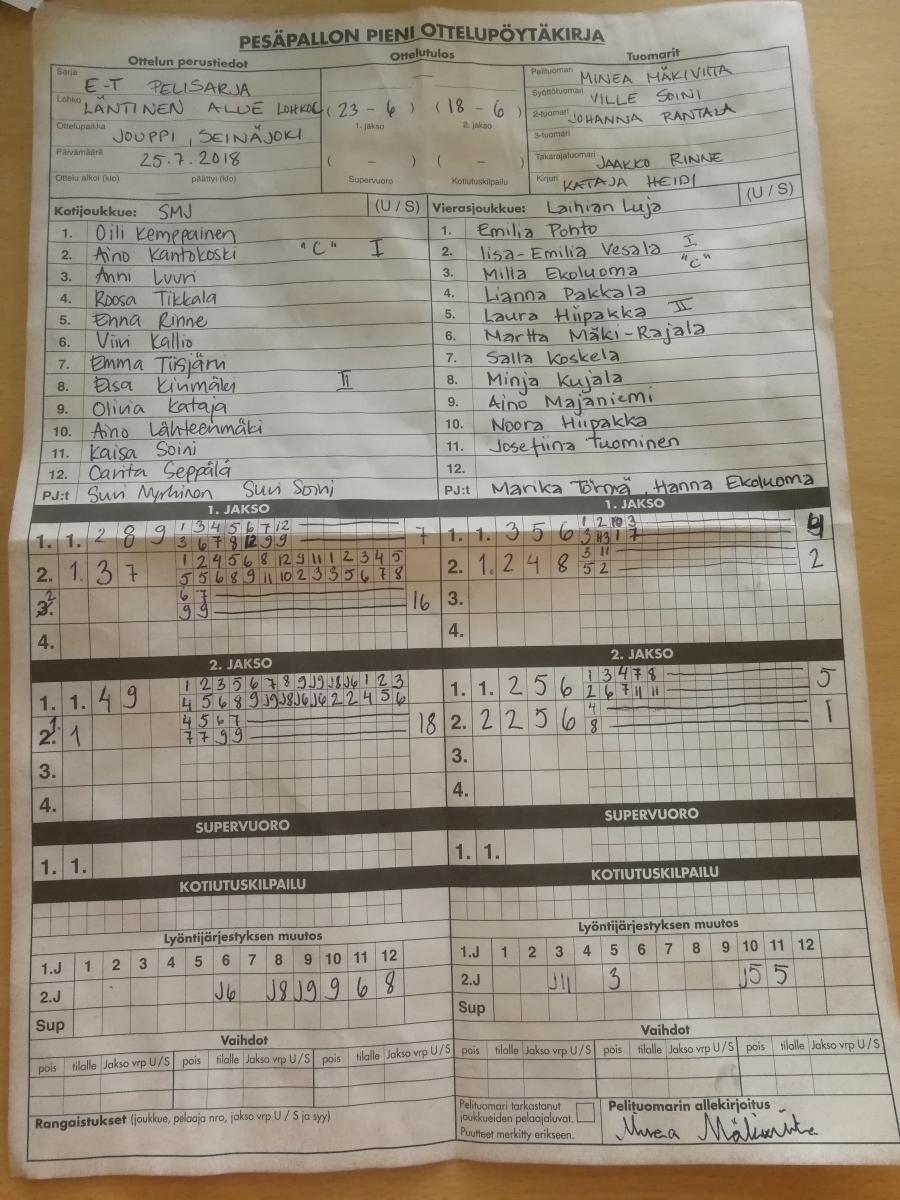 PESÄPALLON PIENI OTTELUPÖYTÄKIRJA
Ottelun perustiedot Ottelutulos Tuomarit
Sarja E-T PELISARJA
Lohko LÄNTINEN ALUE LOHKOC
Ottelupaikka JOUPPI, SEINÄJOKI
Päivämäärä 25.7.2018
Ottelu alkoi (klo) päättyi (klo)
(23 - 6) (18 - 6)
1. jakso 2. jakso
( - ) ( - )
Supervuoro Kotiutuskilpailu
Pelituomari MINEA MÄKIVIITA
Syöttötuomari VILLE SOINI
2-tuomari JOHANNA RANTALA
3-tuomari
Takarajatuomari JAAKKO RINNE
Kirjuri KATAJA HEIDI
Kotijoukkue: SMJ (U / S)
1. Oili Kemppainen
2. Aino Kantokoski "C" I
3. Anni Luuri
4. Roosa Tikkala
5. Enna Rinne
6. Viivi Kallio
7. Emma Tiisjärvi
8. Elsa Kivimäki II
9. Olivia Kataja
10. Aino Lähteenmäki
11. Kaisa Soini
12. Carita Seppälä
PJ:t Suvi Myrhinen Suvi Soini
Vierasjoukkue: Laihian Luja (U / S)
1. Emilia Pohto
2. Iisa-Emilia Vesala I
3. Milla Ekoluoma "C"
4. Lianna Pakkala
5. Laura Hiipakka II
6. Martta Mäki-Rajala
7. Salla Koskela
8. Minja Kujala
9. Aino Majaniemi
10. Noora Hiipakka
11. Josefiina Tuominen
12.
PJ:t Marika Törmä, Hanna Ekoluoma
1. JAKSO
1. 1. 2 8 9 1 3 4 5 6 7 12 7
3 6 7 8 12 9 9
2. 1. 3 7 1 2 4 5 6 8 12 9 11 1 2 3 4 5
5 5 6 8 9 11 10 2 3 3 5 6 7 8
2 6 7 16
9 9
4.
1. JAKSO
1. 1. 3 5 6 1 2 10 3 4
3 11 1 7
2. 1. 2 4 8 3 11 2
5 2
3.
4.
2. JAKSO
1. 1. 4 9 1 2 3 5 6 7 8 9 J9 J8 J6 1 2 3
4 5 6 8 9 J9 J8 J6 J6 2 2 4 5 6
1. 1 4 5 6 7 18
7 7 9 9
3.
4.
2. JAKSO
1. 1. 2 5 6 1 3 4 7 8 5
2 6 7 11 11
2. 2 2 5 6 4 1
8
3.
4.
SUPERVUORO
1. 1.
SUPERVUORO
1. 1.
KOTIUTUSKILPAILU
KOTIUTUSKILPAILU
Lyöntijärjestyksen muutos
1.J 1 2 3 4 5 6 7 8 9 10 11 12
2.J J6 J8 J9 9 6 8
Sup
Lyöntijärjestyksen muutos
1.J 1 2 3 4 5 6 7 8 9 10 11 12
2.J J11 3 J5 5
Sup
Vaihdot
pois tilalle Jakso vrp U/S pois tilalle Jakso vrp U/S pois tilalle Jakso vrp U/S
Vaihdot
pois tilalle Jakso vrp U/S pois tilalle Jakso vrp U/S pois tilalle Jakso vrp U/S
Rangaistukset (joukkue, pelaaja nro, jakso vrp U / S ja syy)
Pelituomari tarkastanut
joukkueiden pelaajaluvat.
Puutteet merkitty erikseen.
Pelituomarin allekirjoitus
Minea Mäkiviita